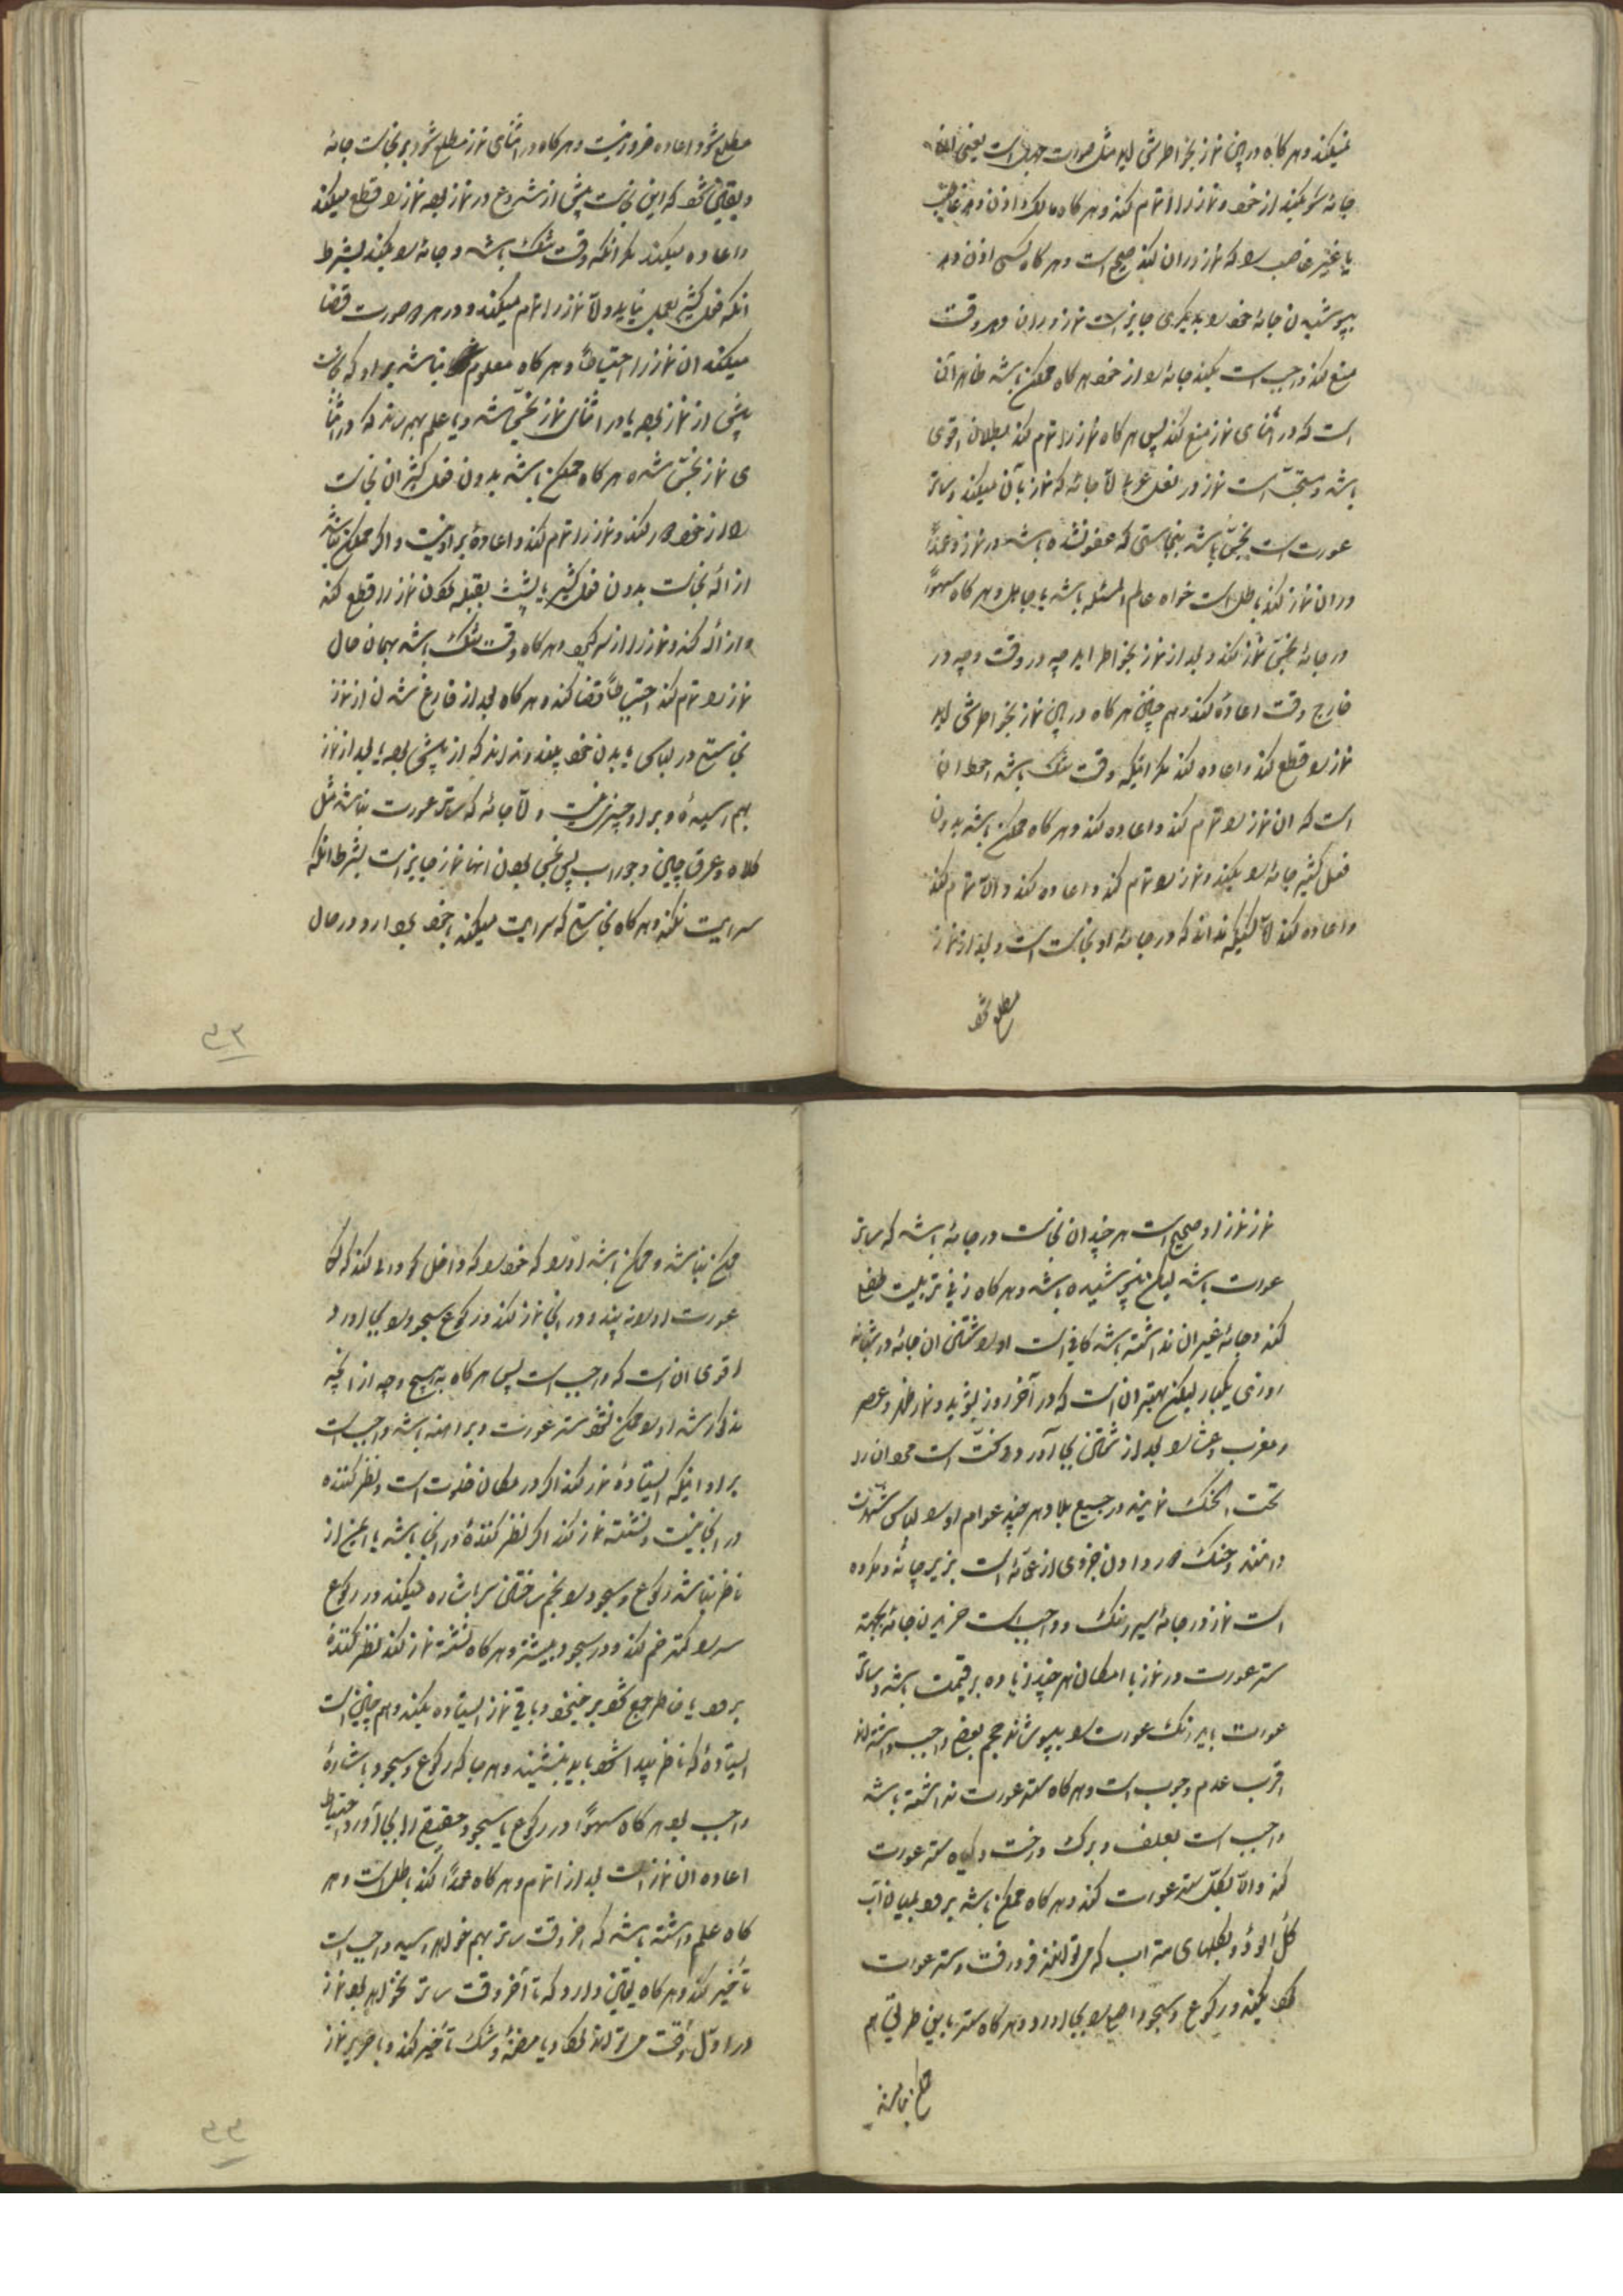 میکند و هر کاه در بین نماز بخواطرش اید مثل صورت جهل است یعنی
جامه را میکند از خود و نماز را اتمام کند و هر کاه مالک اذن دهد غاصب
یا غیر غاصب را که نماز در ان کند صحیح است و هر کاه کسی اذن دهد
بپوشیدن جامهٔ خود را بدیکری جایز است نماز در ان و هر وقت
منع کند واجب است بکند جامه را از خود هر کاه ممکن باشد خاهر آن
است که در اثنای نماز منع کند پس هر کاه نماز را تمام کند بطلان اقوی
باشد و مستحبّ است نماز در نعل عربی امّا جامهٔ که نماز بآن میکند و ساتر
عورت است نجس باشد بنجاستی که عفو نشده باشد در نماز و عمداً
در ان نماز کند باطل است خواه عالم بمسئله باشد یا جاهل و هر کاه سهواً
در جامهٔ نجس نماز کند و بعد از نماز بخواطر اید چه در وقت و چه در
خارج وقت اعاده کند و هم چنین هر کاه در بین نماز بخواطرش اید
نماز را قطع کند و اعاده کند مکر اینکه وقت تنک باشد احوط ان
است که ان نماز را تمام کند و اعاده کند و هر کاه ممکن باشد بدون
فعل کثیر جامه را بکند و نماز را تمام کند و اعاده کند و الّا تمام کند
و اعاده کند امّا کسیکه نداند که در جامهٔ او نجاست است و بعد از نماز
مطلع شود
مطلع شود اعاده ضرور نیست و هر کاه در اثنای نماز مطلع شود بر نجاست جامهٔ
و یقین شود که این نجاست پیش از شروع در نماز بوده نماز را قطع میکند
و اعاده میکند مکر انکه وقت تنک باشد و جامه را میکند بشرط
انکه فعل کثیر بعمل نیاید و الّا نماز را تمام میکند و در هر دو صورت قضا
میکند ان نماز را احتیاطاً و هر کاه معلوم نباشد بر او که نجاست
پیش از نماز بوده یا در اثنای نماز نجس شده و یا علم بهم رساند که در اثنا
ی نماز نجس شده هر کاه ممکن باشد بدون فعل کثیر ان نجاست
را از خود دور کند و نماز را تمام کند و اعادهٔ بر او نیست و اکر ممکن نباشد
ازالهٔ نجاست بدون فعل کثیر یا پشت بقبله نمودن نماز را قطع کند
و ازاله کند و نماز را از سر کیرد و هر کاه وقت تنک باشد بهمان حال
نماز را تمام کند احتیاطاً قضا کند و هر کاه بعد از فارغ شدن از نماز
نجاستی در لباس یا بدن خود بیند و نداند که از پیش بوده یا بعد از نماز
بهم رسیده و بر او چیزی نیست و امّا جامهٔ که ساتر عورت نباشد مثل
کلاه و عرق چین و جوراب پس نجس بودن انها نماز جایز است بشرط انکه
سرایت نکند و هر کاه نجاستی که سرایت میکند بخود بردارد در حال
۵۳
نماز نماز او صحیح است هر چند ان نجاست در جامهٔ باشد که ساتر
عورت باشد لیکن نپوشیده باشد و هر کاه زنی تربیت طفل
کند و جامهٔ بغیر ان نداشته باشد کافی است او را شستن ان جامه در شبانه
روزی یکبار لیکن بهتر ان است که در آخر روز بشوید و نماز ظهر و عصر
و مغرب و عشا را بعد از شستن بجا آورد و سنّت است مردان را
تحت الحنک نمایند در جمیع بلاد هر چند عوام او را لباس شهرت
دانند و حنک در دادن جزوی از عمّامه است بزیر چانه و مکروه
است نماز در جامهٔ سیر رنک و واجب است خریدن جامه بجهة
ستر عورت در نماز با امکان هر چند زیاده بر قیمت باشد و ساتر
عورت باید رنک عورت را بپوشاند حجم بعضی واجب دانسته اند
اقرب عدم وجوب است و هر کاه ستر عورت نداشته باشد
واجب است بعلف و برک درخت و کیاه ستر عورت
کند و الّا بکل ستر عورت کند و هر کاه ممکن باشد برود بمیان آب
کل آلود و بکلهای ته اب که میتواند فرو رفت و ستر عورت
میکند و رکوع و سجود اصلی را بجا اورد و هر کاه ستر باین طریق هم
ممکن نباشد
ممکن نباشد و ممکن باشد او را که خود را که داخل کودالی کند که کسی
عورت او را نه بیند و در انجا نماز کند و رکوع و سجود را بجا اورد
اقوی ان است که واجب است پس هر کاه بهیچ وجه از انچه
مذکور شد او را ممکن نشود ستر عورت و برهنه باشد واجب است
بر او اینکه ایستاده نماز کند اکر در مکان خلوت است و نظر کننده
در انجا نیست و نشسته نماز کند اکر نظر کنندهٔ در انجا باشد یا ایمن از
ناظر نباشد و رکوع و سجود را بخم ساختن سر اشاره میکند و در رکوع
سر را کمتر خم کند و در سجود بیشتر و هر کاه نشسته نماز کند نظر کنندهٔ
برود یا خاطر جمع شود بر میخیزد و باقی نماز ایستاده میکند و هم چنین است
ایستادهٔ که ناظر پیدا شود باید بنشیند و هر جا که رکوع و سجود باشارهٔ
واجب بود هر کاه سهواً در رکوع یا سجود حقیقی را بجا آورد احتیاط
اعاده ان نماز است بعد از اتمام و هر کاه عمداً کند باطل است و هر
کاه علم داشته باشد که اخر وقت ساتر بهم خواهد رسید واجب است
تأخیر کند و هر کاه یقین دارد که تا آخر وقت ساتر نخواهد بود نماز
در اوّل وقت میتواند کرد و با مظنه و شک تأخیر کند و با حریر نماز